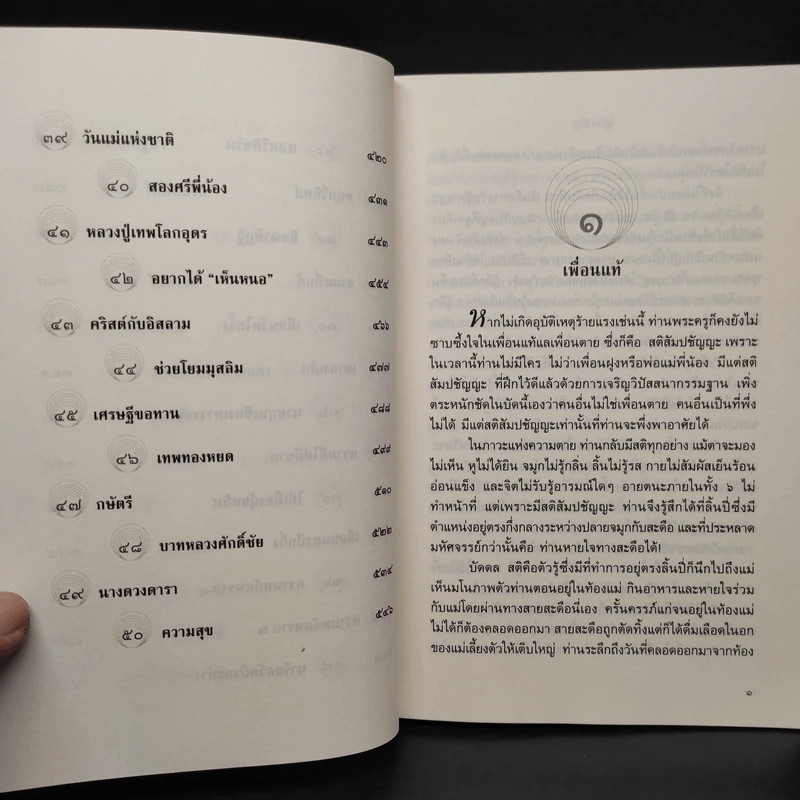 ๓๙ วันแม่แห่งชาติ ๔๒๐
๔๐ สองศรีพี่น้อง ๔๓๑
๔๑ หลวงปู่เทพโลกอุดร ๔๔๓
๔๒ อยากได้ “เห็นหนอ” ๔๕๔
๔๓ คริสต์กับอิสลาม ๔๖๖
๔๔ ช่วยโยมมุสลิม ๔๗๗
๔๕ เศรษฐีขอทาน ๔๘๘
๔๖ เทพทองหยด ๔๙๙
๔๗ กษัตรี ๕๑๐
๔๘ บาทหลวงศักดิ์ชัย ๕๒๒
๔๙ นางดวงดารา ๕๓๔
๕๐ ความสุข ๕๔๖
๑
เพื่อนแท้
หากไม่เกิดอุบัติเหตุร้ายแรงเช่นนี้ ท่านพระครูก็คงยังไม่
ซาบซึ้งใจในเพื่อนแท้แลเพื่อนตาย ซึ่งก็คือ สติสัมปชัญญะ เพราะ
ในเวลานี้ท่านไม่มีใคร ไม่ว่าเพื่อนฝูงหรือพ่อแม่พี่น้อง มีแต่สติ
สัมปชัญญะ ที่ฝึกไว้ดีแล้วด้วยการเจริญวิปัสสนากรรมฐาน เพิ่ง
ตระหนักชัดในบัดนี้เองว่าคนอื่นไม่ใช่เพื่อนตาย คนอื่นเป็นที่พึ่ง
ไม่ได้ มีแต่สติสัมปชัญญะเท่านั้นที่ท่านจะพึ่งพาอาศัยได้
ในภาวะแห่งความตาย ท่านกลับมีสติทุกอย่าง แม้ตาจะมอง
ไม่เห็น หูไม่ได้ยิน จมูกไม่รู้กลิ่น ลิ้นไม่รู้รส กายไม่สัมผัสเย็นร้อน
อ่อนแข็ง และจิตไม่รับรู้อารมณ์ใดๆ อายตนะภายในทั้ง ๖ ไม่
ทำหน้าที่ แต่เพราะมีสติสัมปชัญญะ ท่านจึงรู้สึกได้ที่ลิ้นปี่ซึ่งมี
ตำแหน่งอยู่ตรงกึ่งกลางระหว่างปลายจมูกกับสะดือ และที่ประหลาด
มหัศจรรย์กว่านั้นคือ ท่านหายใจทางสะดือได้!
บัดดล สติคือตัวรู้ซึ่งมีที่ทำการอยู่ตรงลิ้นปี่ก็นึกไปถึงแม่
เห็นมโนภาพตัวท่านตอนอยู่ในท้องแม่ กินอาหารและหายใจร่วม
กับแม่โดยผ่านทางสายสะดือนี่เอง ครั้นครรภ์แก่จนอยู่ในท้องแม่
ไม่ได้ก็ต้องคลอดออกมา สายสะดือถูกตัดทิ้งแต่ก็ได้ดื่มเลือดในอก
ของแม่เลี้ยงตัวให้เติบใหญ่ ท่านระลึกถึงวันที่คลอดออกมาจากท้อง
๑